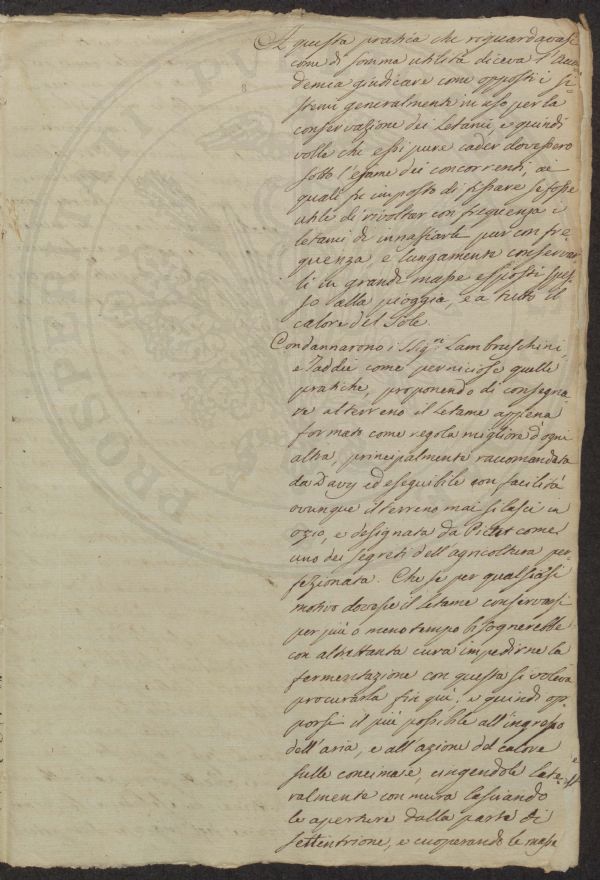 A questa pratica che riguardavasi
come di somma utilità diceva l'Acca
demia giudicare come opposti i si=
stemi generalmente in uso per la
conservazione dei Letami, e quindi
volle che essi pure cader dovessero
sotto l'esame dei concorrenti, ai
quali fu imposto di fissare se fosse
utile di rivoltar con frequenza i
letami di innaffiarli pur con fre
quenza, e lungamente conservar
li in grandi masse esposti spes
so alla pioggia, e a tutto il
calore del Sole.
Condannarono i Sigri Lambruschini,
e Taddei come perniciose quelle
pratiche, proponendo di consegna=
re al terreno il Letame appena
formato come regola migliore d'ogni
altra, principalmente raccomandata
da Davy ed eseguibile con facilità
ovunque il terreno mai si lasci in
ozio, e designata da Pictet come
uno dei segreti dell'agricoltura per=
fezionata. Che se per qualsiasi
motivo dovesse il Letame conservarsi
per più o meno tempo bisognerebbe
con altrettanta cura impedirne la
fermentazione con quanta si voleva
procurarla fin quì, e quindi op
porsi il più possibile all'ingresso
dell'aria, e all'azione del calore
sulle concimaie, cingendole late=
ralmente con mura lasciando
le aperture dalla parte di
settentrione, e cuoprendo le masse
PROSPERITATI PUBLICAE